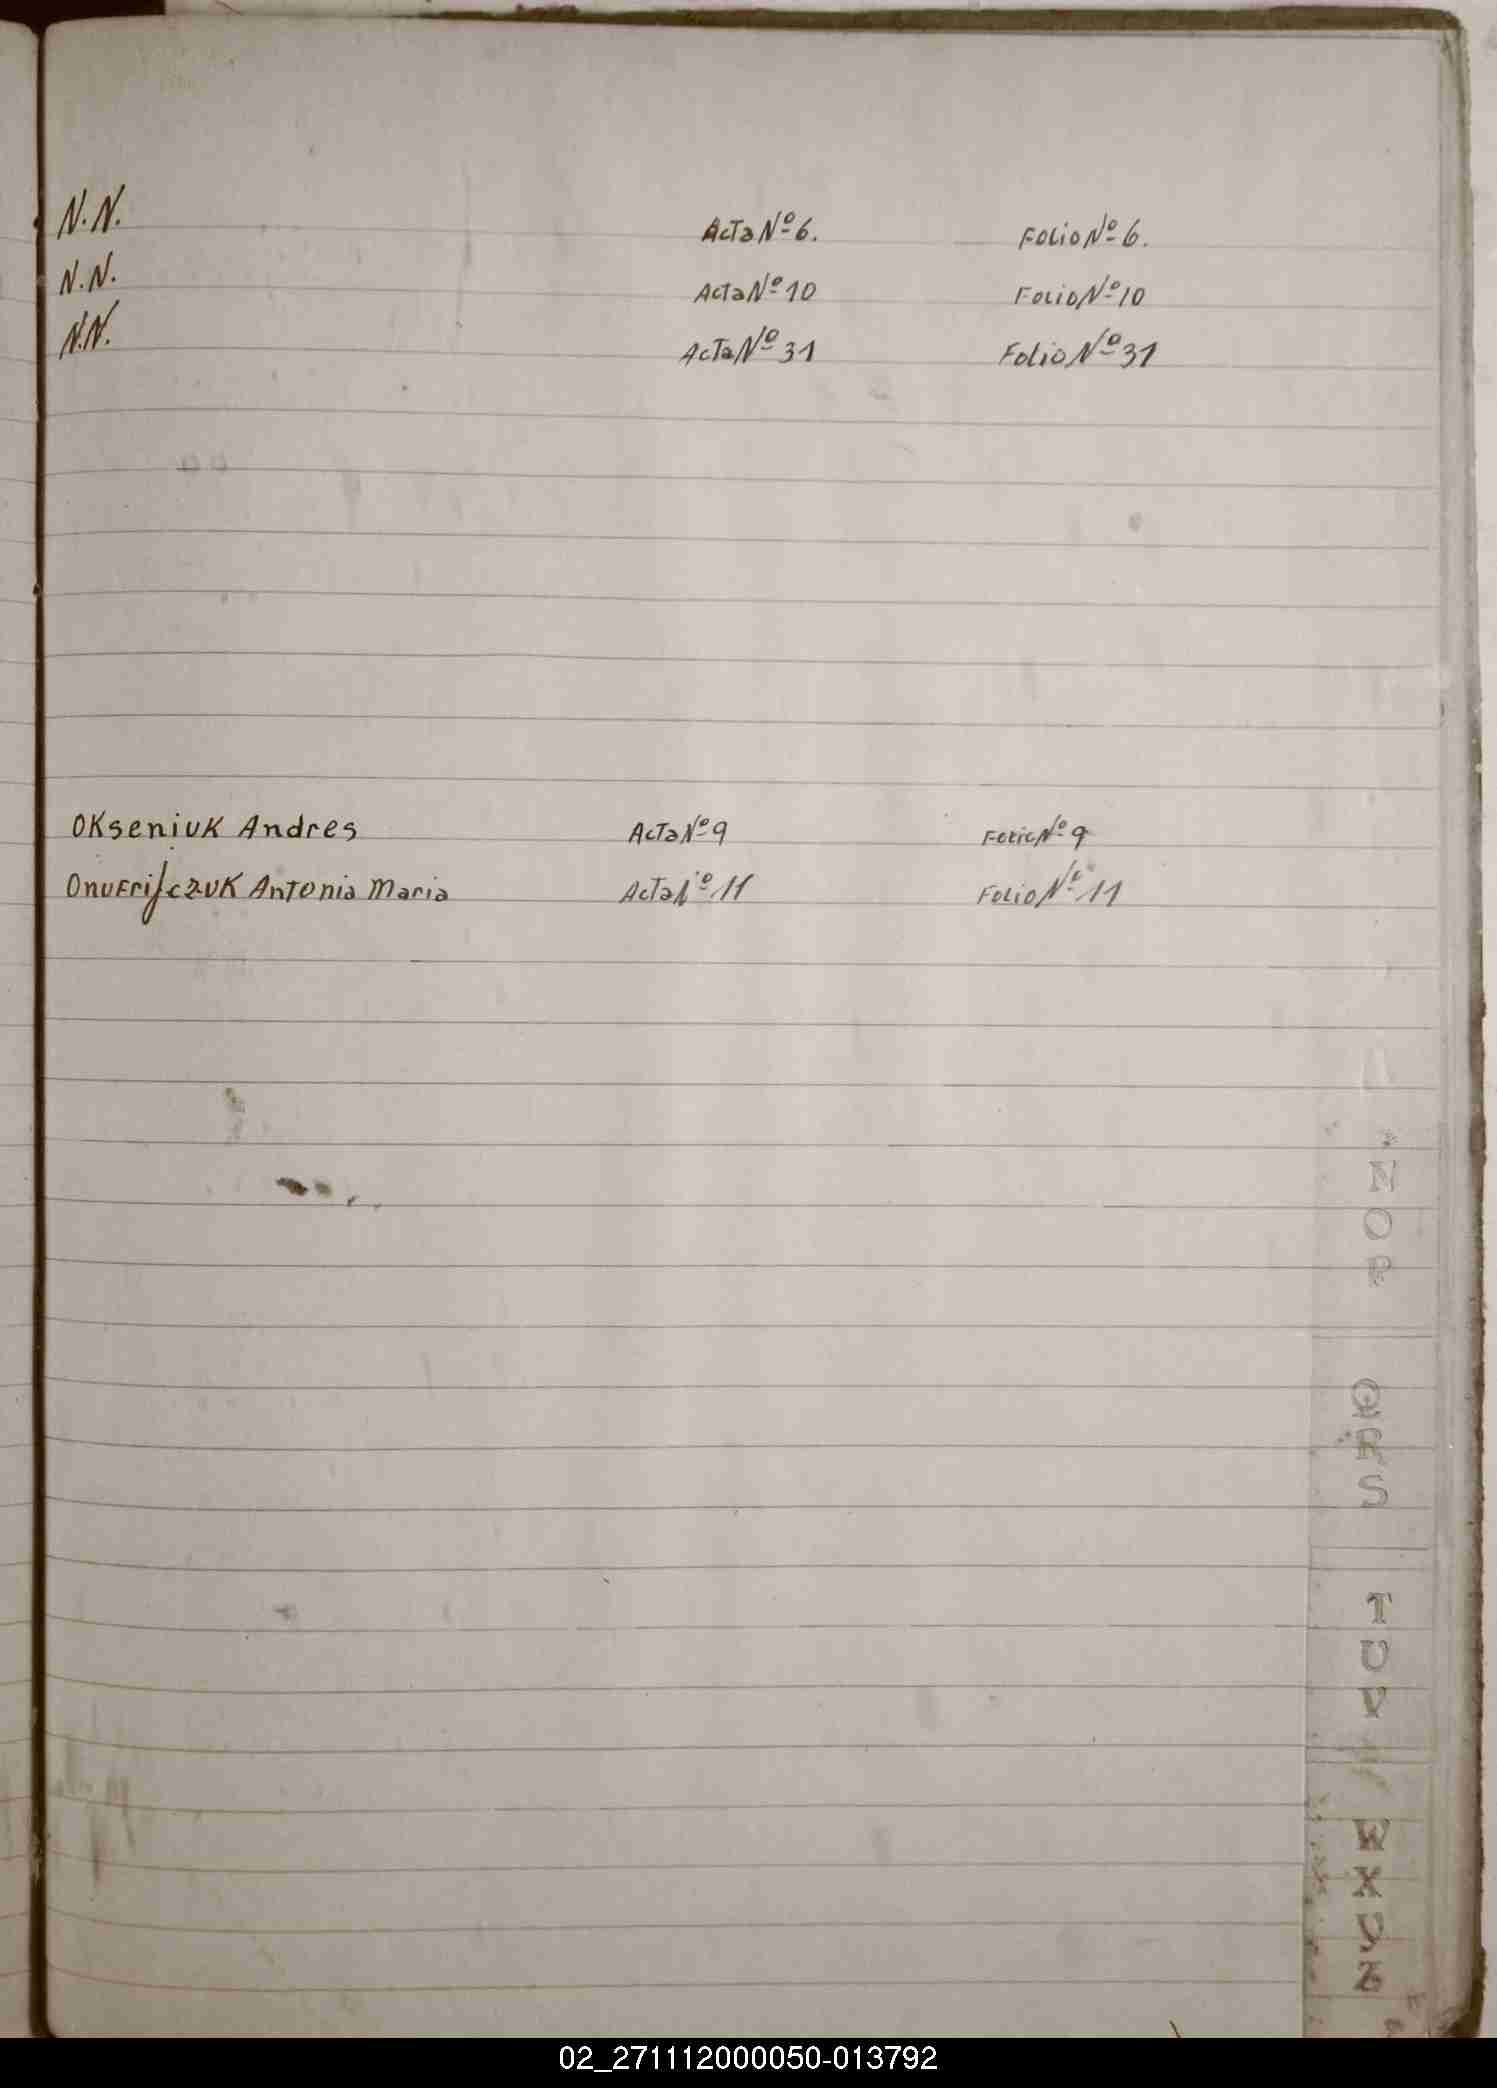 N.N. Acta Nº 6. Folio Nº 6.
N.N. Acta Nº 10 Folio Nº 10
N.N. Acta Nº 31 Folio Nº 31
Okseniuk Andres Acta Nº 9 Folio Nº 9
Onufrijczuk Antonia Maria Acta Nº 11 Folio Nº 11
N
O
P
Q
R
S
T
U
V
W
X
Y
Z
02_271112000050-013792